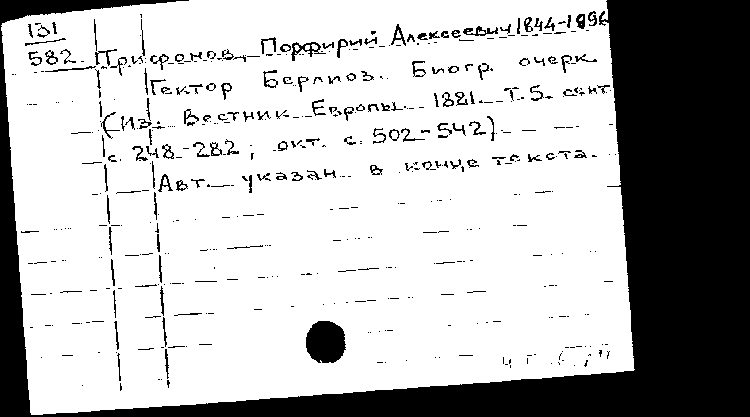 131
582 Трифонов, Порфирий Алексеевич 1844-1896
Гектор Берлиоз. Биогр. очерк.
(Из: Вестник Европы 1881. Т.5. сент
с. 248-282; окт. с. 502-542)
Авт. указан в конце текста.